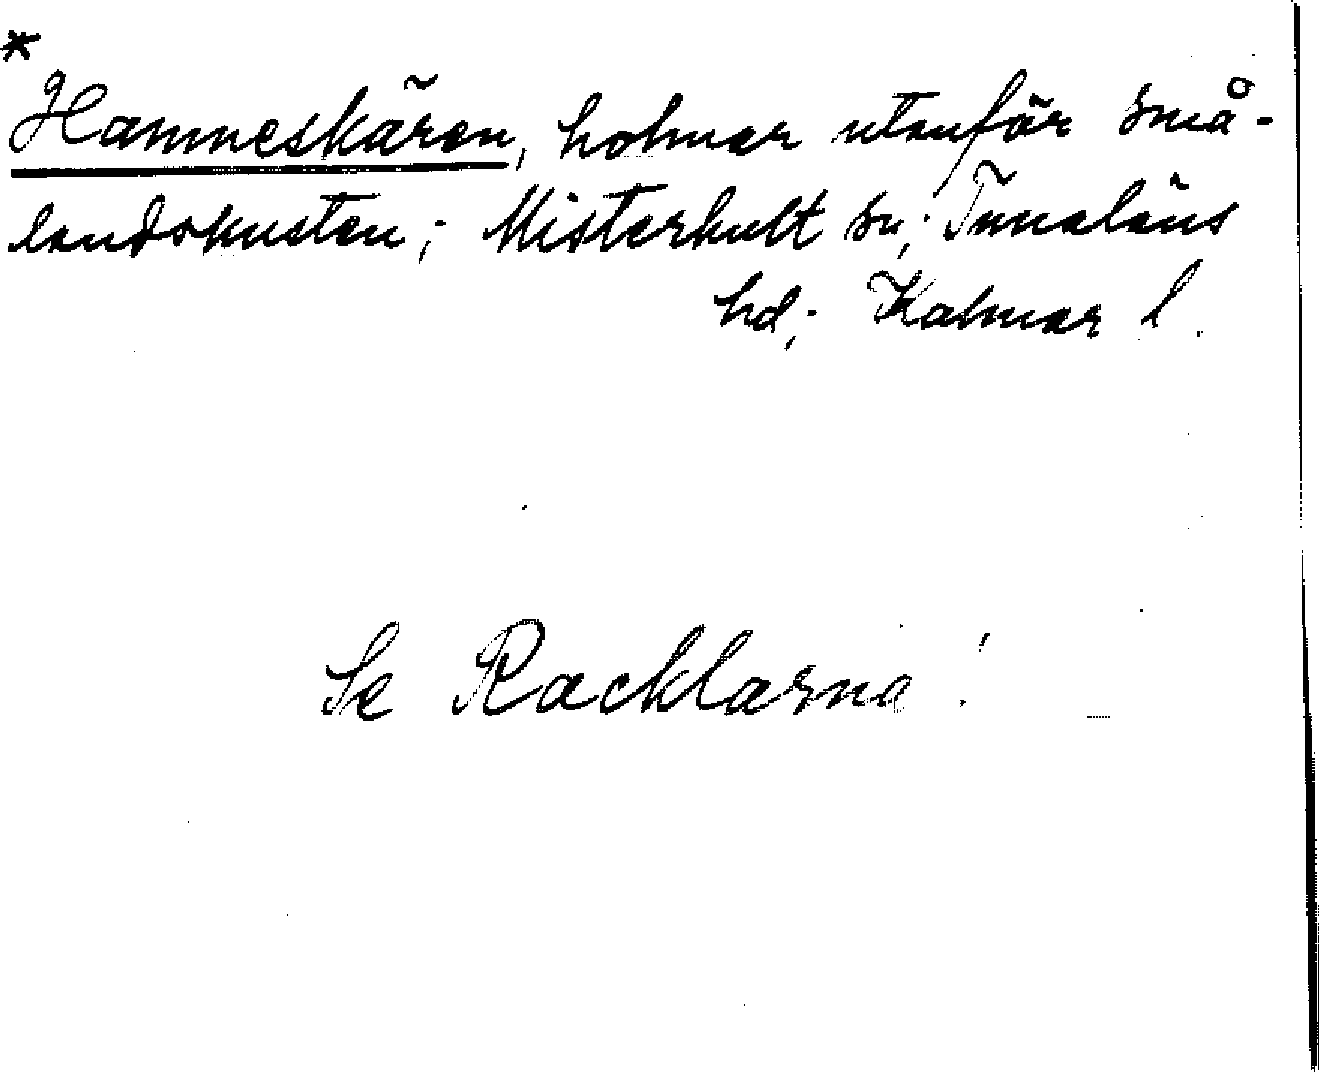 *
Hamneskären, holmar utanför små-
landskusten; Misterhult sn; Tunaläns
hd; Kalmar l.
Se Racklarna!